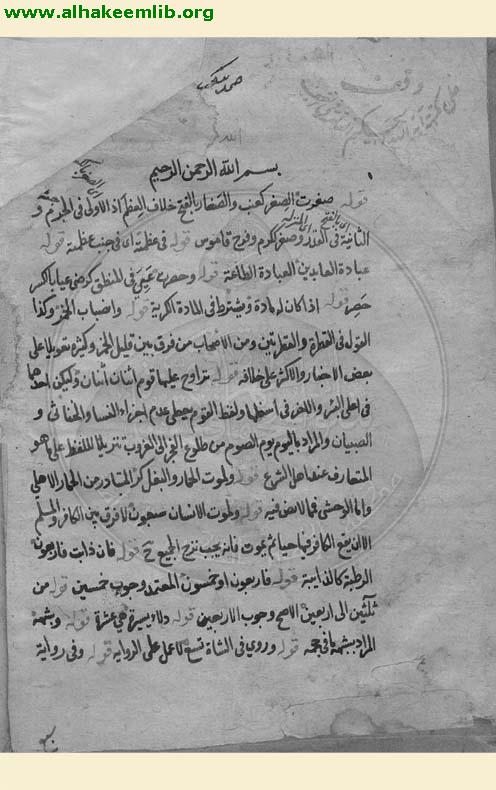 www.alhakeemlib.org
بسم الله الرحمن الرحيم
قوله صغرت الصغر كعنب والصغار بالفتح خلاف العظم اذ الاولى فى الجرم و
الثانية فى القدر وصغر ككرم وفرح قاموس قوله فى عظمته اى فى جنب عظمته قوله
عبادة العابدين العبادة الطاعة قوله وحصر عيى فى المنطق كرضى عيا بالكسر
حصر قوله اذا كان له مادة ويشترط فى المادة الكرية قوله واضباب الخمر وكذا
القول فى القطرة والقطرتين ومن الاصحاب من فرق بين قليل الخمر وكثيره تعويلا على
بعض الاخبار والاكثر على خلافه قوله تراوح عليها قوم اثنان اثنان وليكن احدهما
فى اعلى البئر والاخر فى اسفلها ولفظ القوم يعطى عدم اجزاء النساء والخناثى و
الصبيان والمراد باليوم يوم الصوم من طلوع الفجر الى الغروب تنزيلا للفظ على ما هو
المتعارف عند اهل الشرع قوله ولموت الحمار والبغل كر المتبادر من الحمار الاهلى
واما الوحشى فمما لا نص فيه قوله ولموت الانسان سبعون لا فرق بين الكافر والمسلم
الا ان يقع الكافر فيها حيا ثم يموت فانه يجب نزح الجميع ح قوله فان ذابت فاربعون
الرطبة كالذايبة قوله فاربعون او خمسون المعتمد وجوب خمسين قوله من
ثلثين الى اربعين الاصح وجوب الاربعين قوله دلاء يسيرة هى عشرة قوله وشبهه
المراد بشبهه ما فى حجمه قوله وروى فى الشاة تسع لا عمل على الرواية قوله وفى رواية
سبع